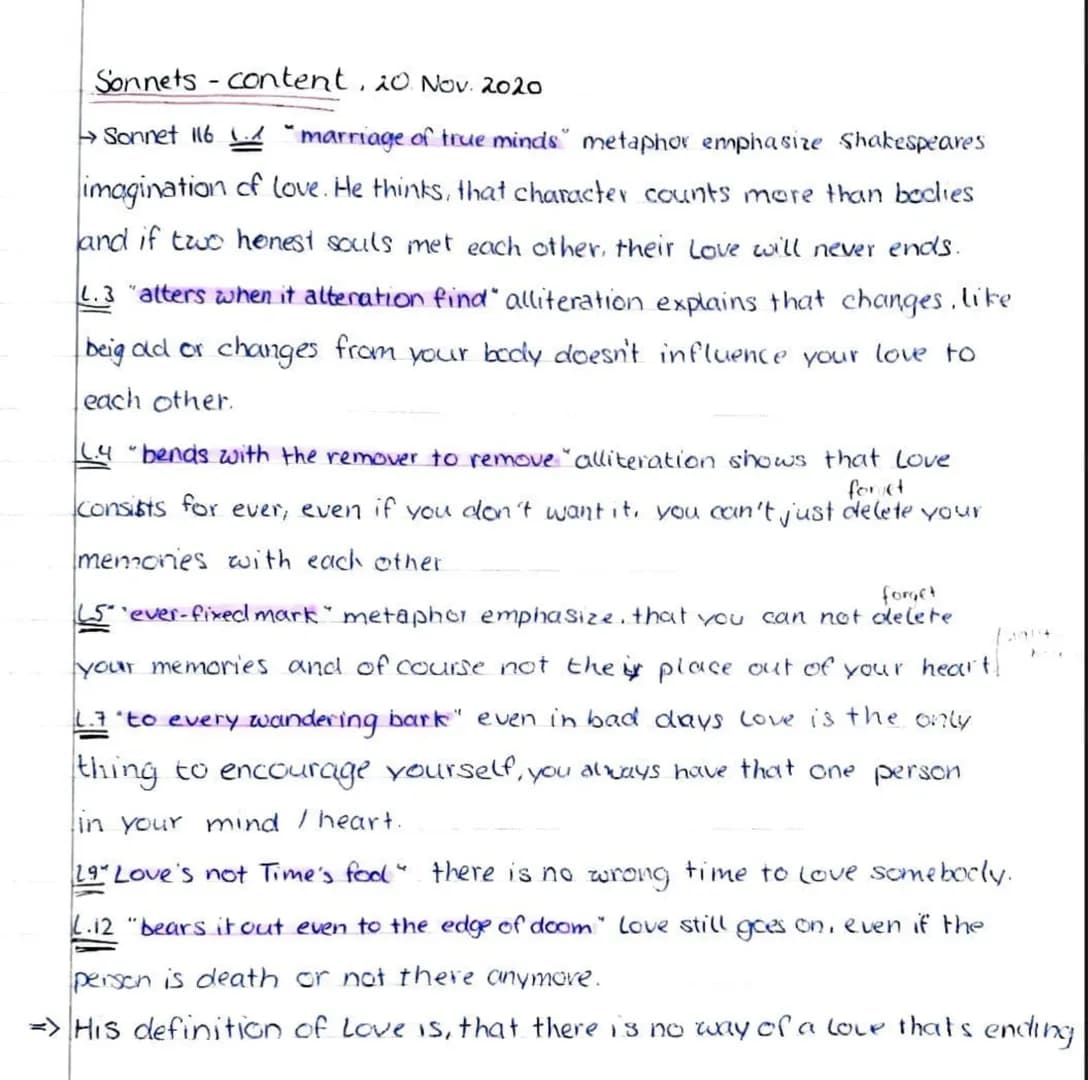 Sonnets - content, 20. Nov. 2020
→ Sonnet 116 L.1 "marriage of true minds" metaphor emphasize Shakespeares
imagination of love. He thinks, that character counts more than bodies
and if two honest souls met each other, their Love will never ends.
L.3 "alters when it alteration find" alliteration explains that changes, like
beig old or changes from your body doesn't influence your love to
each other.
L.4 "bends with the remover to remove" alliteration shows that Love
forget
consists for ever, even if you don't want it, you can't just delete your
memories with each other
forget
L5 "ever-fixed mark" metaphor emphasize, that you can not delete
your memories and of course not the place out of your heart
L.7 "to every wandering bark" even in bad days Love is the only
thing to encourage yourself, you always have that one person
in your mind / heart.
L9 "Love's not Time's fool" there is no wrong time to Love somebody.
L.12 "bears it out even to the edge of doom" Love still goes on, even if the
person is death or not there anymore.
=> His definition of Love is, that there is no way of a love thats ending